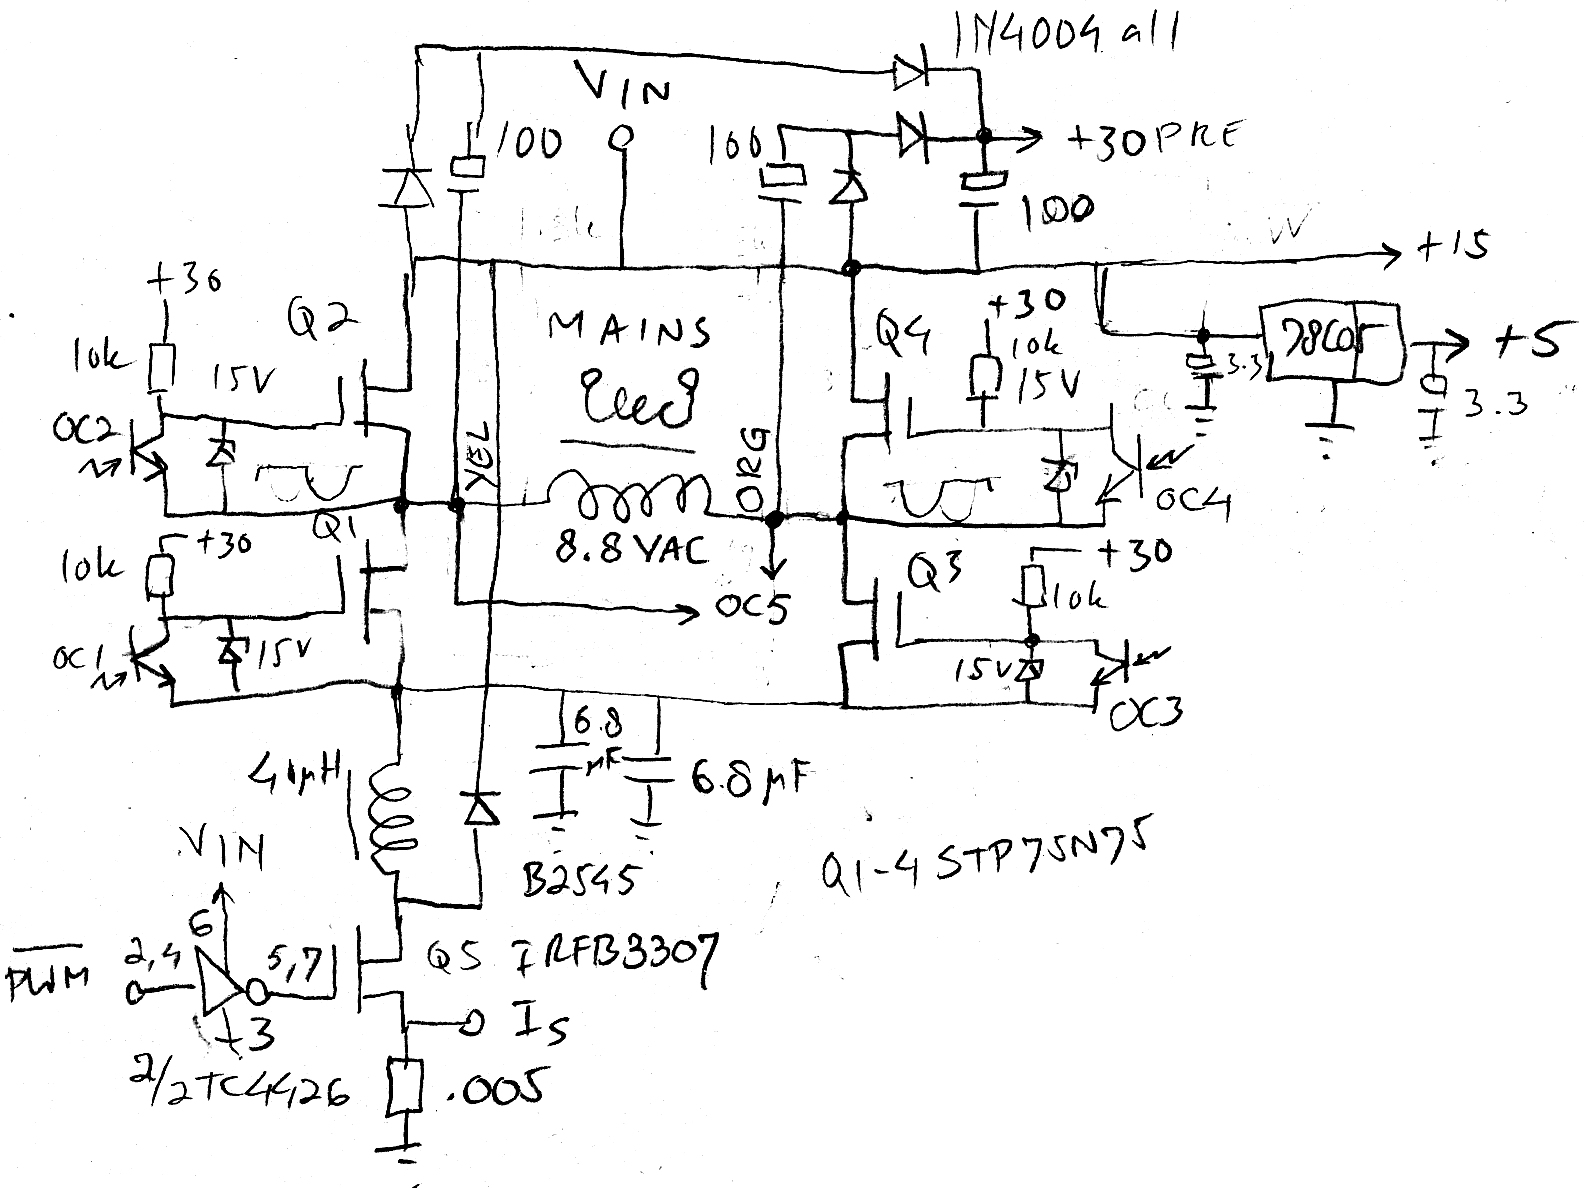 1N4004 all
VIN
100
100
+30PRE
100
+15
+30
Q2
MAINS
Q4
+30
10k
15V
10k
15V
78L05
+5
3.3
3.3
OC2
YEL
ORG
OC4
+30
Q1
8.8VAC
Q3
+30
10k
OC5
10k
OC1
15V
15V
OC3
40µH
6.8
µF
6.8µF
VIN
B2545
Q1-4 STP75N75
6
PWM
2,4
5,7
Q5 IRFB3307
3
IS
2/2TC4426
.005